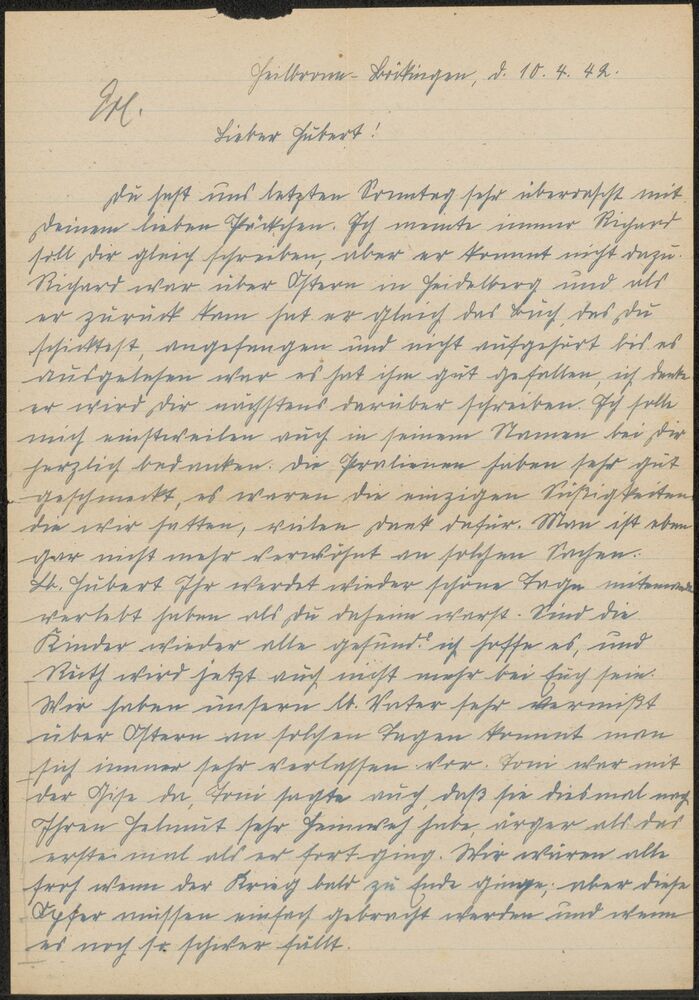 Heilbronn-Böckingen, d. 10. 4. 42.
Erl.
Lieber Hubert!
Du hast uns letzten Sonntag sehr überrascht mit
Deinem lieben Päckchen. Ich meinte immer Richard
soll Dir gleich schreiben, aber er kommt nicht dazu.
Richard war über Ostern in Heidelberg und als
er zurück kam hat er gleich das Buch, das Du
schicktest, angefangen und nicht aufgehört bis es
ausgelesen war es hat ihm gut gefallen, ich denke
er wird Dir nächstens darüber schreiben. Ich soll
mich einstweilen auch in seinem Namen bei Dir
herzlich bedanken. Die Pralienen haben sehr gut
geschmeckt, es waren die einzigen Süßigkeiten
die wir hatten, vielen Dank dafür. Man ist eben
gar nicht mehr verwöhnt an solchen Sachen.
Lb. Hubert Ihr werdet wieder schöne Tage miteinander
verlebt haben als Du daheim warst. Sind die
Kinder wieder alle gesund? ich hoffe es, und
Ruth wird jetzt auch nicht mehr bei Euch sein.
Wir haben unsern lb. Vater sehr vermißt
über Ostern an solchen Tagen kommt man
sich immer sehr verlassen vor. Toni war mit
der Gise da, Toni sagte auch, daß sie diesmal nach
Ihren Helmut sehr Heimweh habe, ärger als das
erste mal als er fort ging. Wir wären alle
froh wenn der Krieg bald zu Ende ginge; aber diese
Opfer müssen einfach gebracht werden und wenn
es noch so schwer fällt.